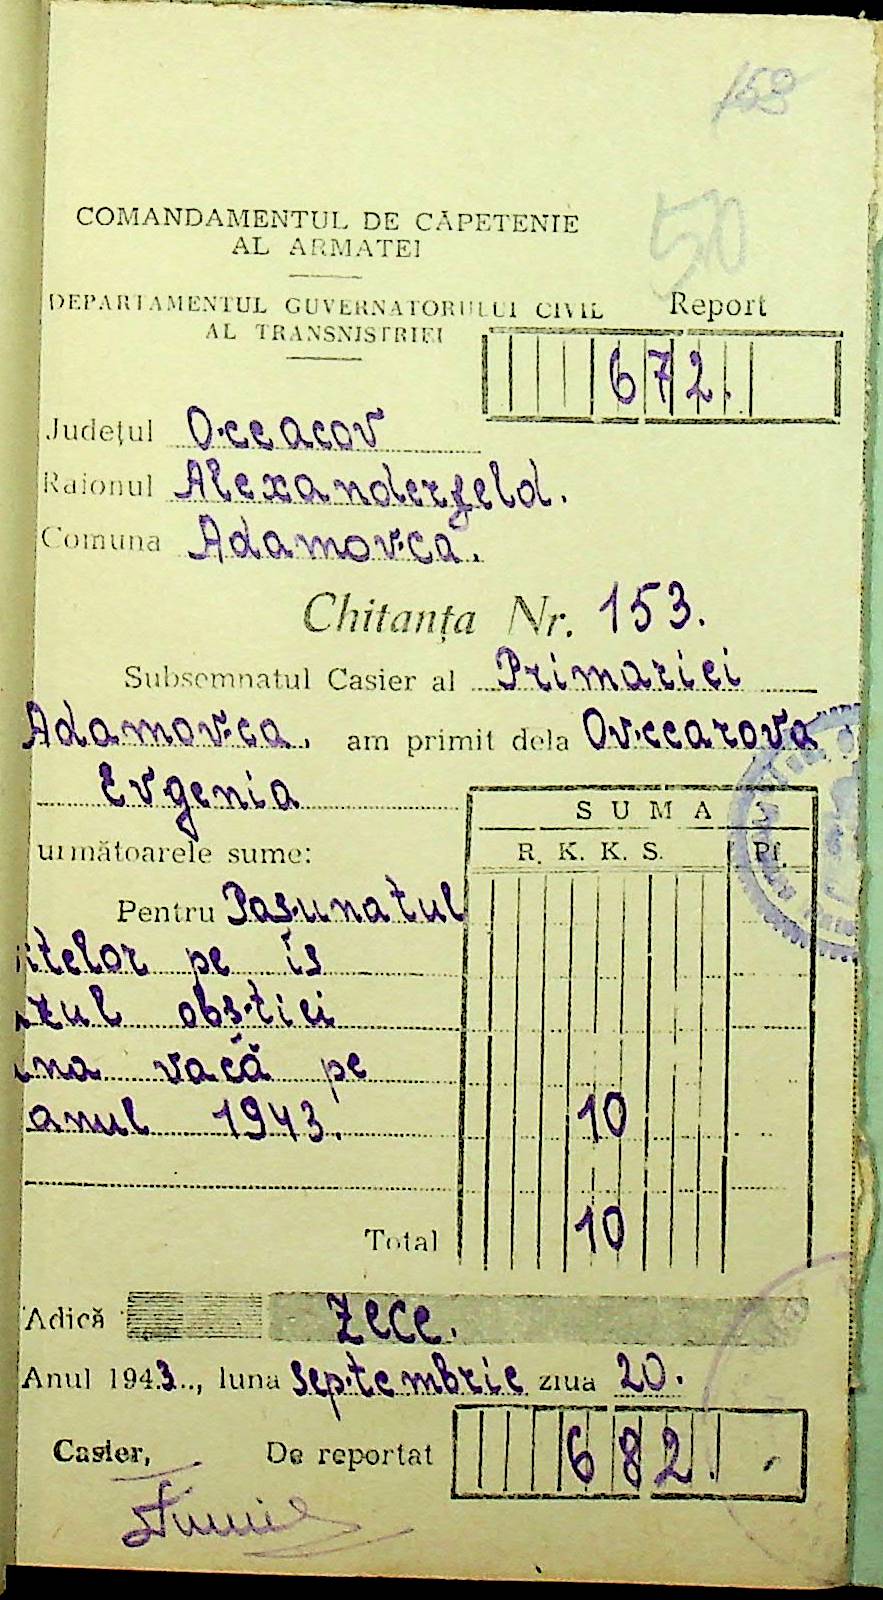 153
50
COMANDAMENTUL DE CĂPETENIE
AL ARMATEI
DEPARTAMENTUL GUVERNATORULUI CIVIL
AL TRANSNISTRIEI
Report
672.
Județul Occeacov
Raionul Alexanderfeld.
Comuna Adamovca.
Chitanța Nr. 153.
Subsemnatul Casier al Primariei
Adamovca. am primit dela Ovccarova
Evgenia
următoarele sume:
SUMA
R. K. K. S. Pf.
Pentru Pasunatul
itelor pe is
zul obstiei
una vacă pe
anul 1943. 10
Total 10
Adică Zece.
Anul 1943.., luna Septembrie ziua 20.
Casier, De reportat 682.